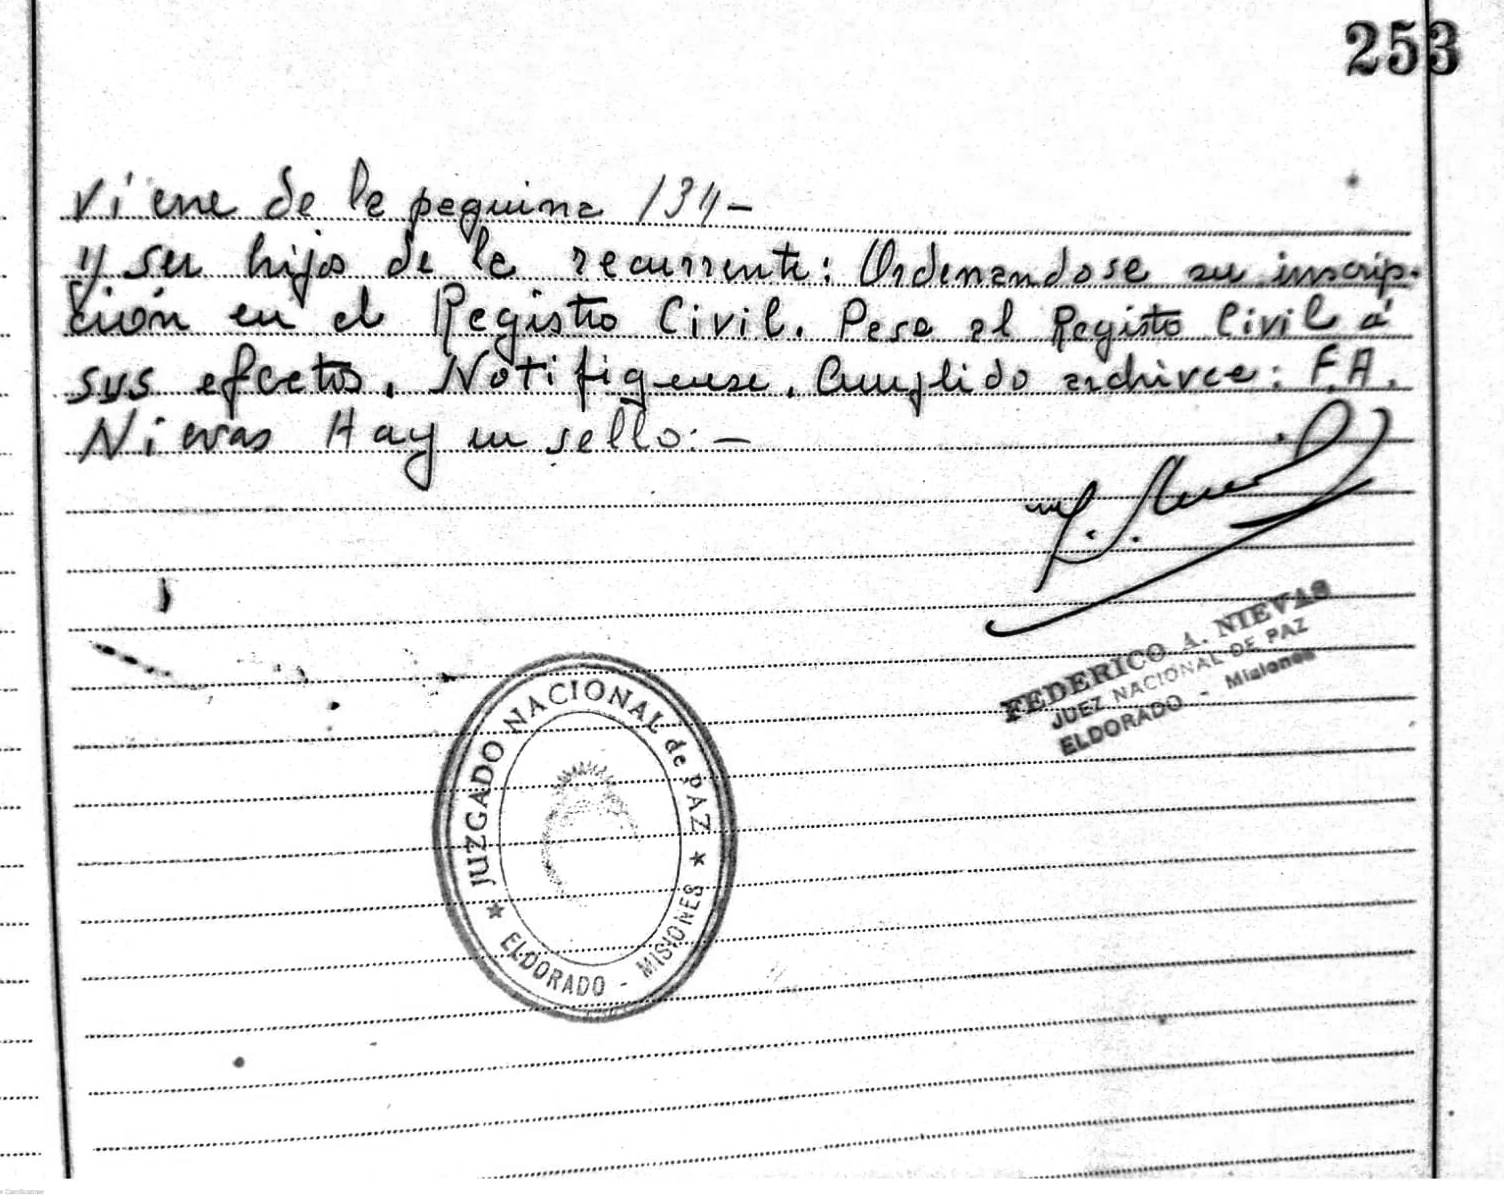 253
Viene de la paguina 134-
y ser hijo de la recurrente: Ordenandose su inscrip-
ción en el Registro Civil. Pase al Registro Civil á
sus efectos. Notifiquese. Cumplido archivese: F.A.
Nievas Hay un sello:-
FEDERICO A. NIEVAS
JUEZ NACIONAL DE PAZ
ELDORADO - Misiones
JUZGADO NACIONAL de PAZ
ELDORADO - MISIONES